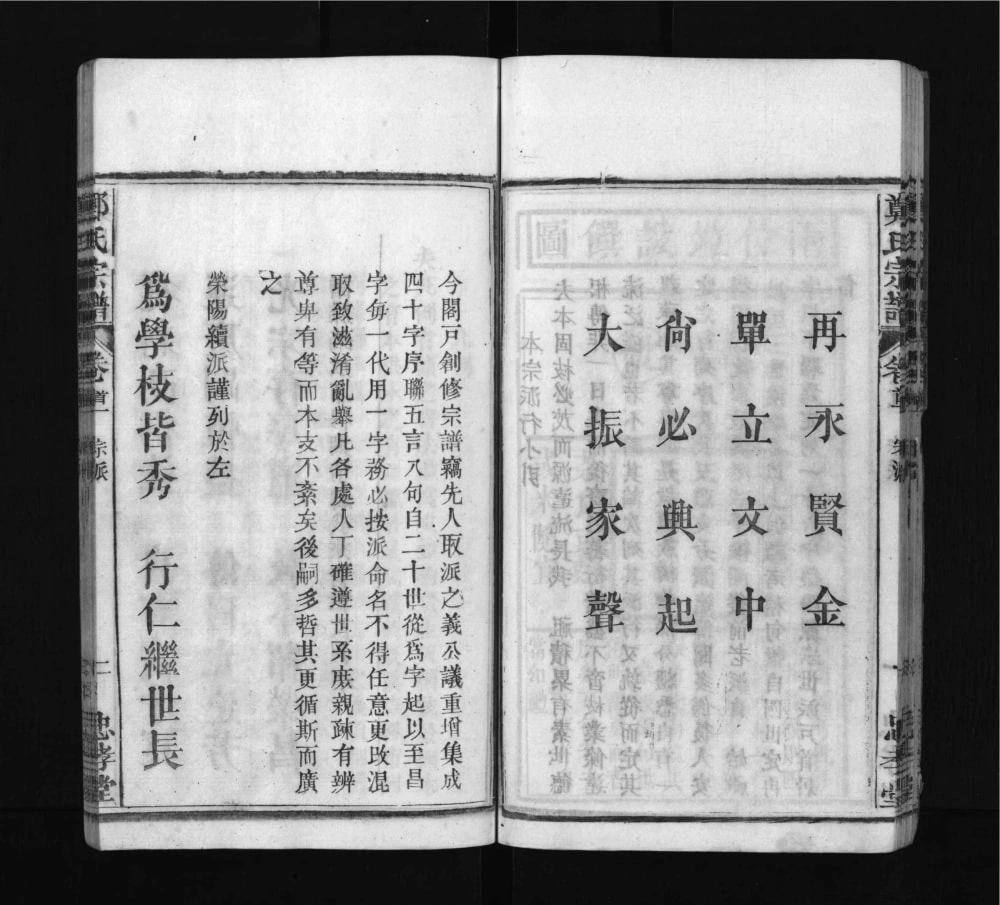 鄭氏宗譜
卷首
宗派
再永賢金
單立文中
尙必興起
大振家聲
忠孝堂
今閤戶創修宗譜竊先人取派之義公議重增集成
四十字序聯五言八句自二十世從爲字起以至昌
字每一代用一字務必按派命名不得任意更改混
取致滋淆亂舉凡各處人丁確遵世系庶親疎有辨
尊卑有等而本支不紊矣後嗣多哲其更循斯而廣
之
滎陽續派謹列於左
爲學枝皆秀 行仁繼世長
鄭氏宗譜
卷首
宗派
二
忠孝堂